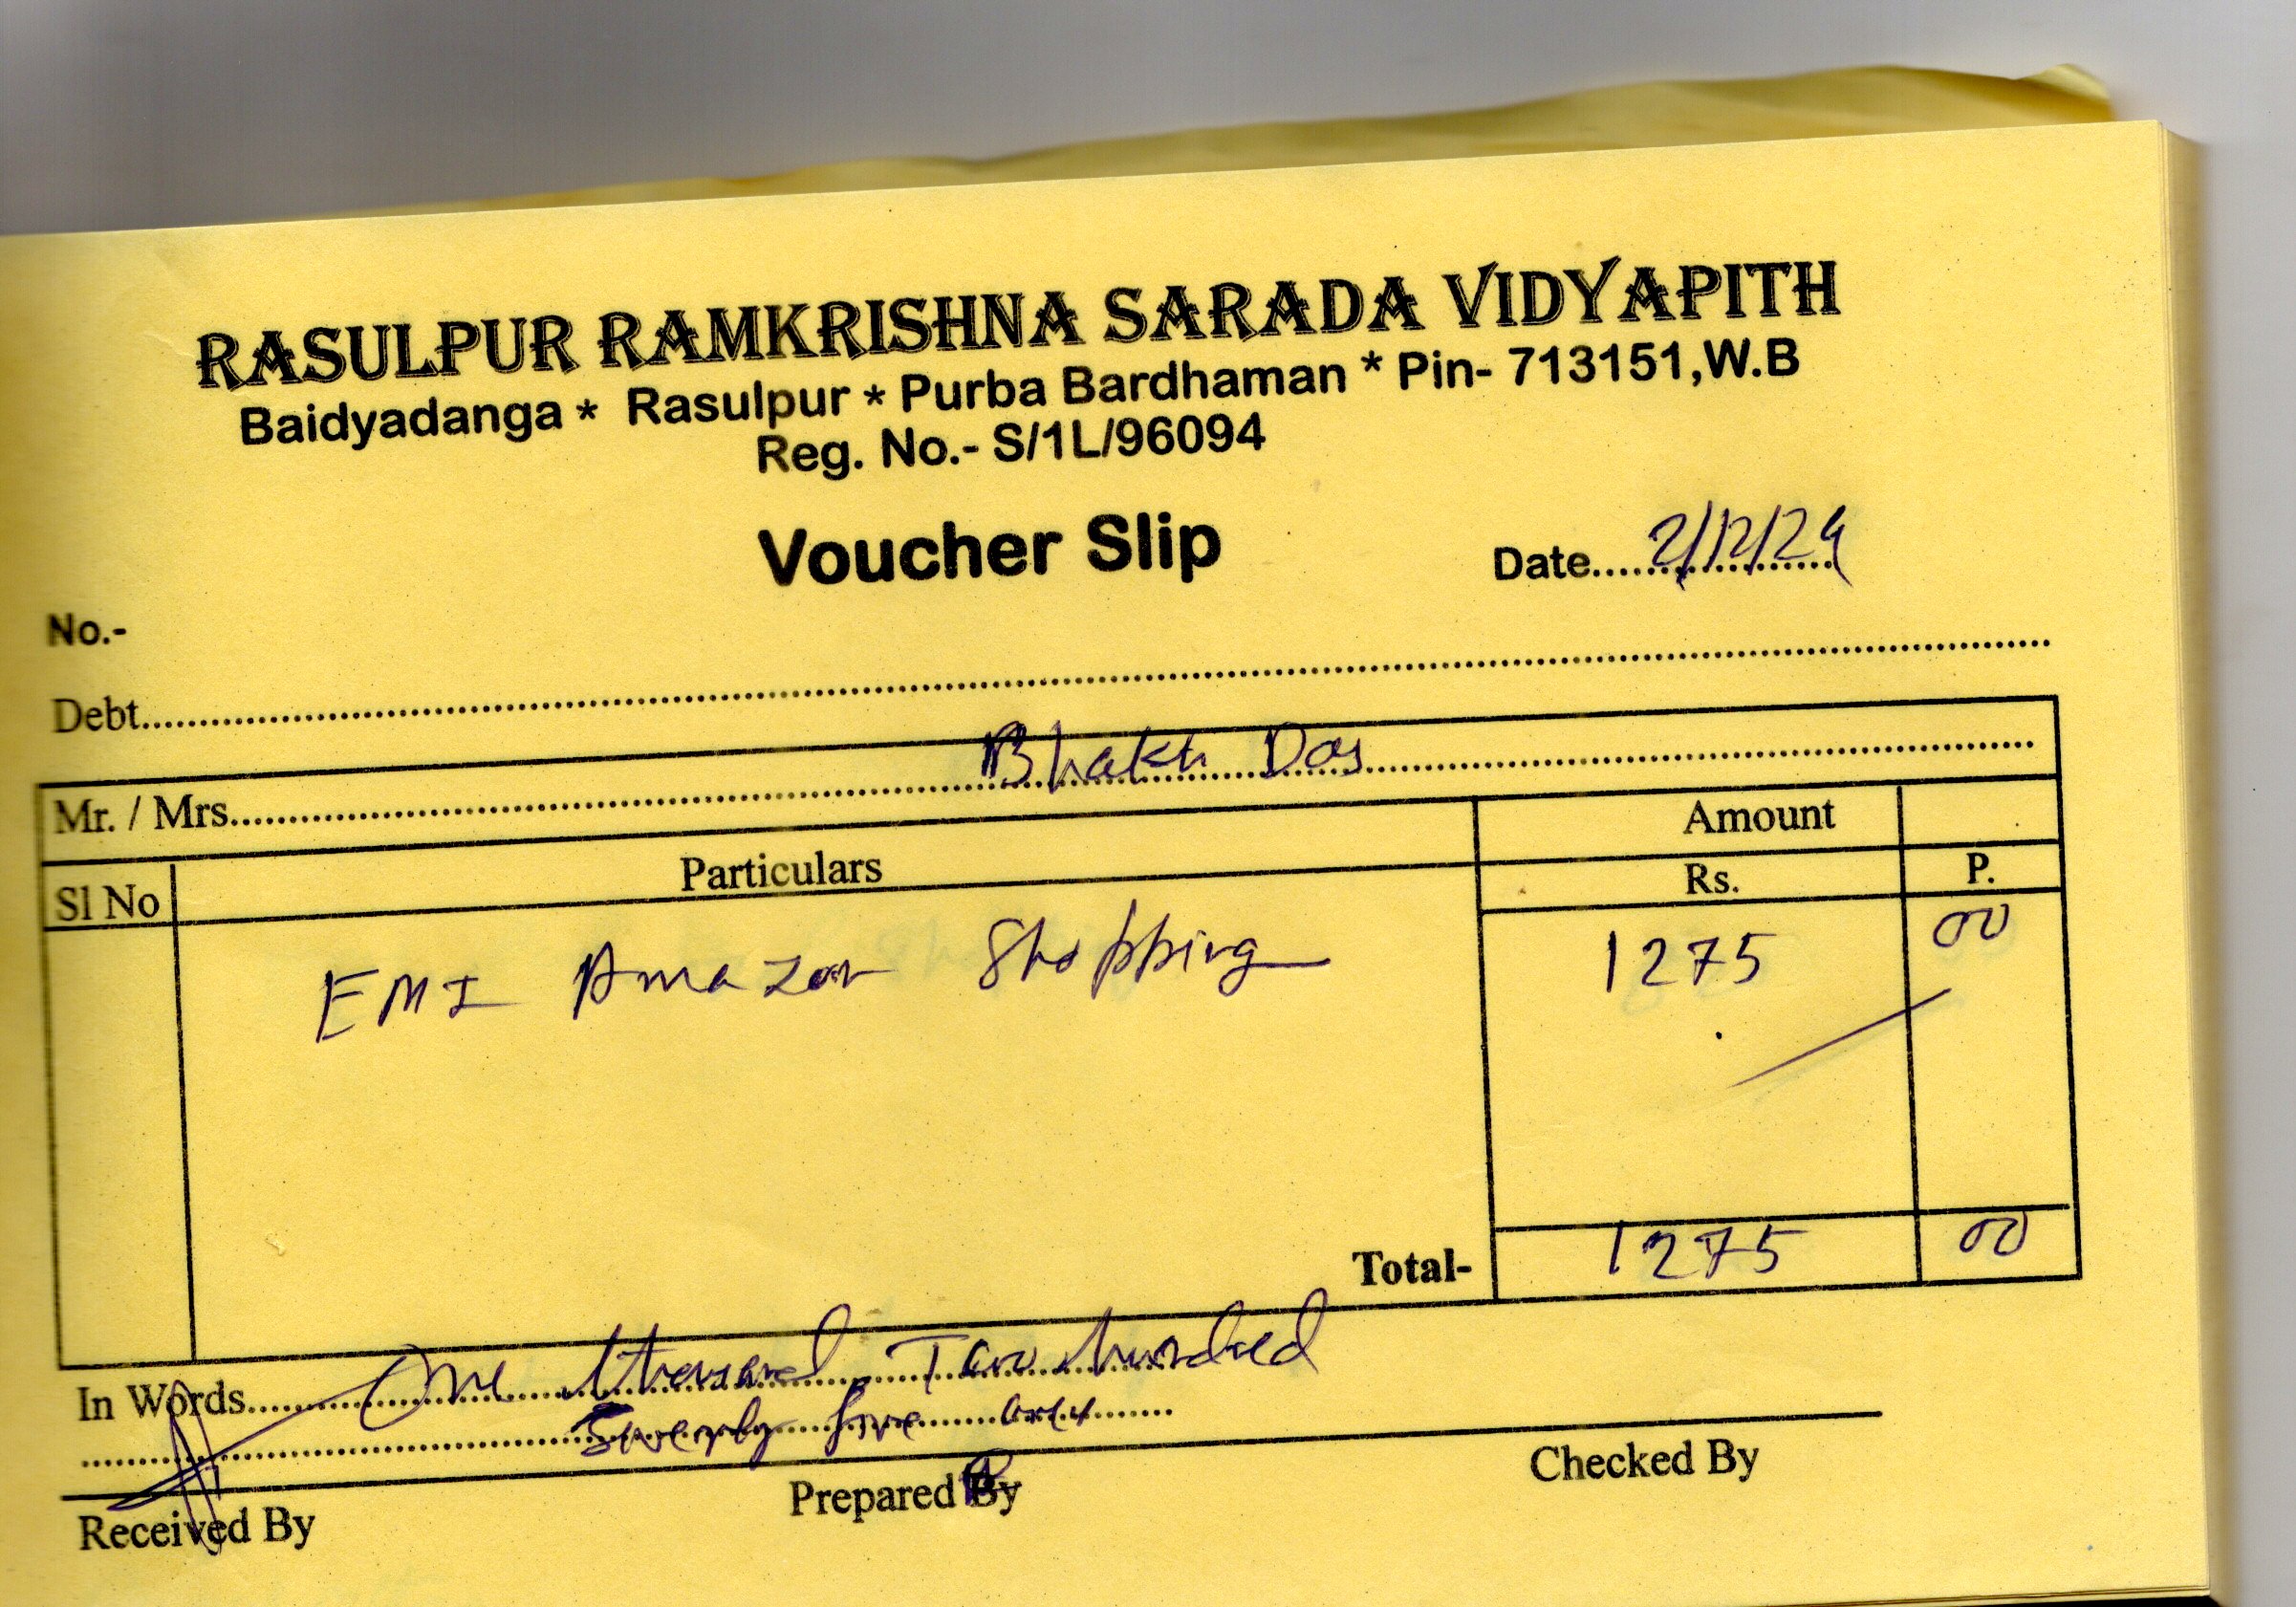 RASULPUR RAMKRISHNA SARADA VIDYAPITH
Baidyadanga * Rasulpur * Purba Bardhaman * Pin- 713151,W.B
Reg. No.- S/1L/96094
Voucher Slip
Date......2/12/24
No.-
Debt......
Mr. / Mrs...... Bhakti Das
Sl No Particulars Amount
Rs. P.
EMI Amazon Shopping 1275 00
Total- 1275 00
In Words...... One thousand Two hundred
Seventy five only
Received By Prepared By Checked By